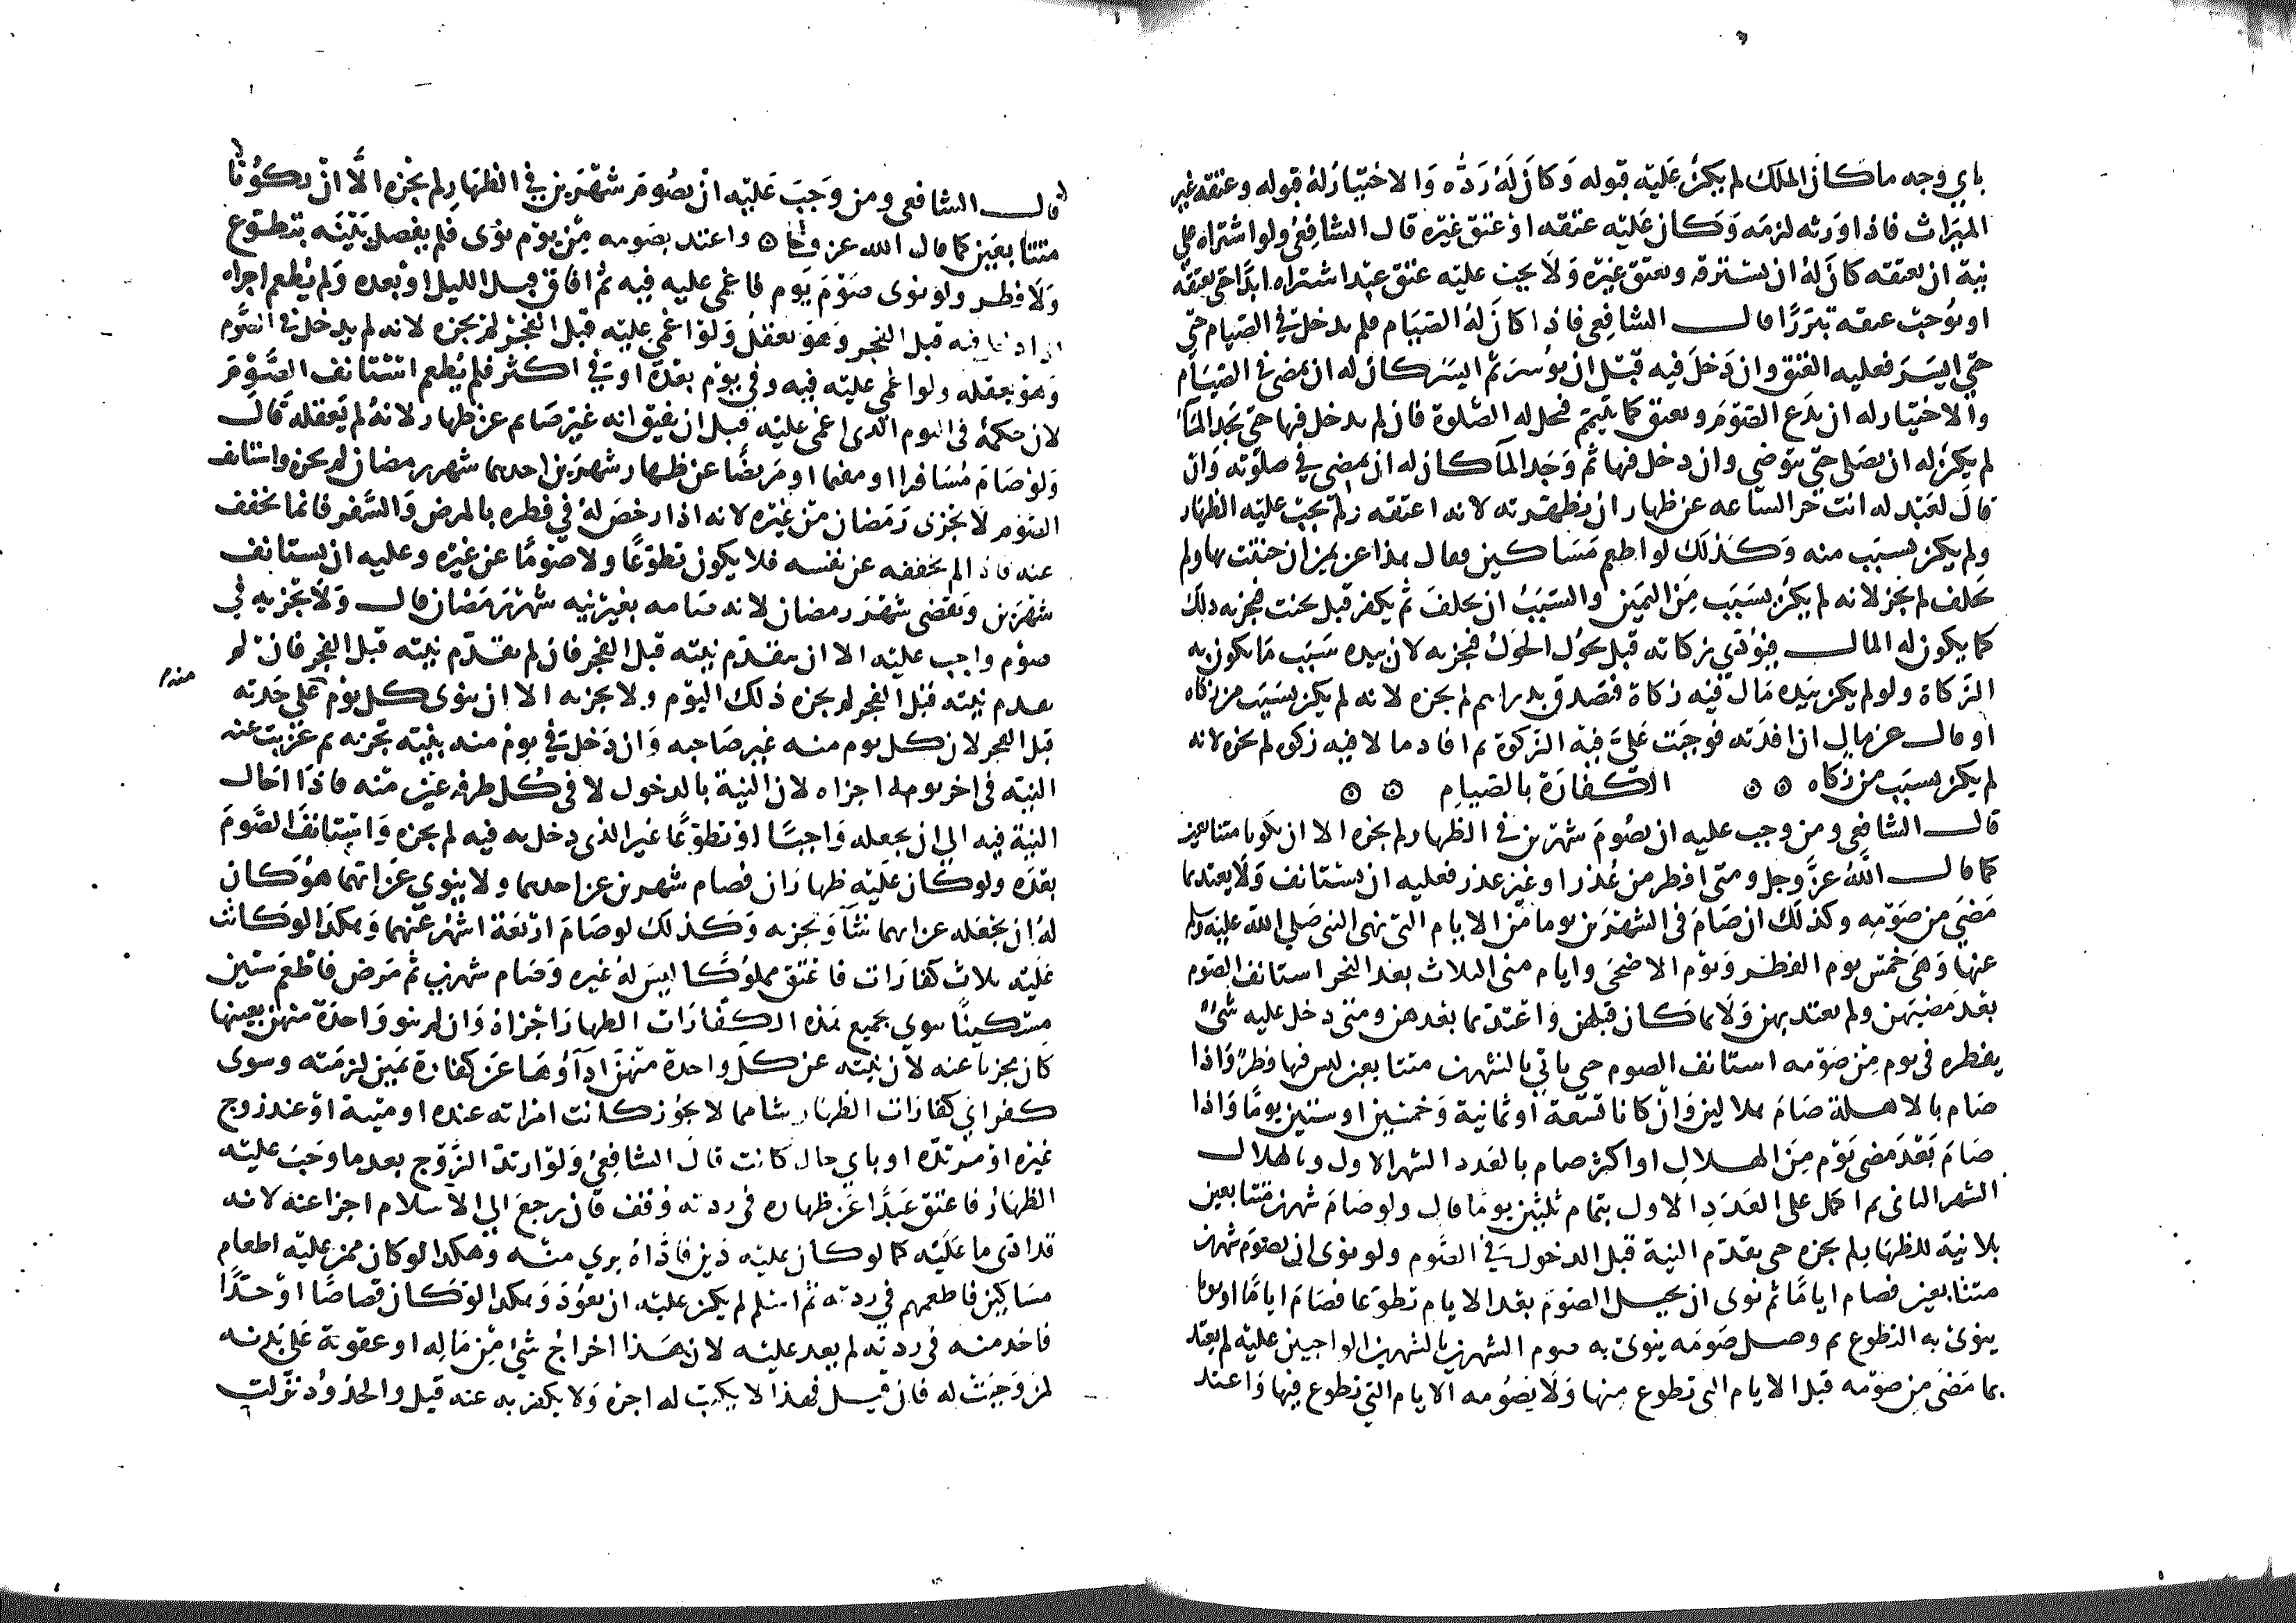 باي وجه ما كان الملك لم يكن عليه قبوله وكان له رده والاختيار له قبوله وعتقه غير
الميراث فاذا ورثه لزمه وكان عليه عتقه او عتق غيره قال الشافعي ولو اشتراه على
نية ان يعتقه كان له ان يسترقه ويعتق غيره ولا يجب عليه عتق عبد اشتراه ابدا حتى يعتقه
او يوجب عتقه تبررا قال الشافعي فاذا كان له الصيام فلم يدخل في الصيام حتى
حتى ايسر فعليه العتق وان دخل فيه قبل ان يوسر ثم ايسر كان له ان يمضي في الصيام
والاختيار له ان يدع الصوم ويعتق كما يتيمم فتحل له الصلوة فان لم يدخل فيها حتى يجد الماء
لم يكن له ان يصلي حتى يتوضى وان دخل فيها ثم وجد الماء كان له ان يمضي في صلوته وان
قال لعبد له انت حر الساعة عن ظهار ان تظهرته لانه اعتقه ولم يجب عليه الظهار
ولم يكن بسبب منه وكذلك لو اطعم مساكين فقال هذا عن يمين ان حنثت بها ولم
يحلف لم يجز لانه لم يكن بسبب من اليمين والسبب ان يحلف ثم يكفر قبل يحنث فيجزيه ذلك
كما يكون له المال فيؤدي زكاته قبل يحول الحول فيجزيه لان بيده سبب ما يكون به
الزكاة ولو لم يكن بيده مال فيه زكاة فتصدق بدراهم لم يجزه لانه لم يكن بسبب من زكاه
او قال عن مال ان افدته فوجبت علي فيه الزكوة ثم افاد ما لا فيه زكوه لم يجزه لانه
لم يكن بسبب من زكاه ۞ ۞ الكفارة بالصيام ۞ ۞
قال الشافعي ومن وجب عليه ان يصوم شهرين في الظهار لم يجزه الا ان يكونا متتابعين
كما قال الله عز وجل ومتى افطر من عذر او غير عذر فعليه ان يستانف ولا يعتد بما
مضى من صومه وكذلك ان صام في الشهرين يوما من الايام التي نهى النبي صلي الله عليه وسلم
عنها وهي خمس يوم الفطر ويوم الاضحى وايام منى الثلاث بعد النحر استانف الصوم
بعد مضيهن ولم يعتد بهن ولا بما كان قبلهن واعتد بما بعدهن ومتى دخل عليه شيء
يفطره في يوم من صومه استانف الصوم حتى ياتي بالشهرين متتابعين ليس فيها فطر واذا
صام بالاهلة صام هلالين وان كانا تسعة او ثمانية وخمسين او ستين يوما واذا
صام بعد مضى يوم من الهلال او اكثر صام بالعدد الشهر الاول وبالهلال
الشهر الثاني ثم اكمل على العدد الاول بتمام ثلثين يوما قال ولو صام شهرين متتابعين
بلا نية للظهار لم يجزه حتى يقدم النية قبل الدخول في الصوم ولو نوى ان يصوم شهرين
متتابعين فصام اياما ثم نوى ان يحيل الصوم بعد الايام تطوعا فصام اياما او يوما
ينوى به التطوع ثم وصل صومه ينوى به صوم الشهرين بالشهرين الواجبين عليه لم يعتد
بما مضى من صومه قبل الايام التي تطوع منها ولا بصومه الايام التي تطوع فيها واعتد
قال الشافعي ومن وجب عليه ان يصوم شهرين في الظهار لم يجزه الا ان يكونا
متتابعين كما قال الله عز وجل ۞ واعتد بصومه من يوم نوى فلم يفصل بينه بتطوع
ولا فطر ولو نوى صوم يوم فاغمي عليه فيه ثم افاق قبل الليل او بعده ولم يطعم اجزاه
اذا دخل فيه قبل الفجر وهو يعقل ولو اغمي عليه قبل الفجر لم يجزه لانه لم يدخل في الصوم
وهو يعقله ولو اغمي عليه فيه وفي يوم بعده او في اكثر فلم يطعم استانف الصوم
لان حكمه في اليوم الذي اغمى عليه قبل ان يفيق انه غير صايم عن ظهار لانه لم يعقله قال
ولو صام مسافرا او مقيما او مريضا عن ظهار شهرين احدهما شهر رمضان لم يجزه واستانف
الصوم لا يجزى رمضان من غيره لانه اذا رخص له في فطره بالمرض والسفر فانما يخفف
عنه فاذ الم يخففه عن نفسه فلا يكون تطوعا ولا صوما عن غيره وعليه ان يستانف
شهرين ويقضى شهر رمضان لانه صامه بغير نيه شهر رمضان قال ولا يجزيه في
صوم واجب عليه الا ان يتقدم نيته قبل الفجر فان لم تقدم نيته قبل الفجر فان لم
تقدم نيته قبل الفجر لم يجزه ذلك اليوم ولا يجزيه الا ان ينوى كل يوم على حدته
قبل الفجر لان كل يوم منه غير صاحبه وان دخل في يوم منه بنية تجزيه ثم عزبت عنه
النية في اخر يومه اجزاه لان النية بالدخول لا في كل طرفه عين منه فاذا احال
النية فيه الى ان يجعله واجبا او تطوعا غير الذي دخل به فيه لم يجزه واستانف الصوم
بعده ولو كان عليه ظهاران فصام شهرين عن احدهما ولا ينوي عن ايهما هو كان
له ان يجعله عن ايهما شآ ويجزيه وكذلك لو صام اربعة اشهر عنهما وهكذا لو كانت
عليه ثلاث كفارات فاعتق مملوكا ليس له غيره وصام شهرين ثم مرض فاطعم ستين
مسكينا نوى بجميع هذه الكفارات الظهار اجزاه وان لم ينو واحدة منهن بعينها
كان مجزيا عنه لان نيته عن كل واحدة منهن اداؤها عن كفارة يمين لزمته وسوى
كفر اي كفارات الظهار شا مما لا يجوز كانت امراته عنده او ميتة او عند زوج
غيره او مرتده او باي حال كانت قال الشافعي ولو ارتد الزوج بعدما وجب عليه
الظهار فاعتق عبدا عن ظهاره في ردته وقف فان رجع الى الاسلام اجزا عنه لانه
قد ادى ما عليه كما لو كان عليه دين فاداه بري منه وهكذا لو كان ممن عليه اطعام
مساكين فاطعمهم في ردته ثم اسلم لم يكن عليه ان يعود وهكذا لو كان قصاصا او حدا
فاخذ منه في ردته لم يعد عليه لان هذا اخراج شيء من ماله او عقوبة على بدنه
لمن وجبت له فان قيل فهذا لا يكتب له اجره ولا يكفر به عنه قيل والحدود نزلت